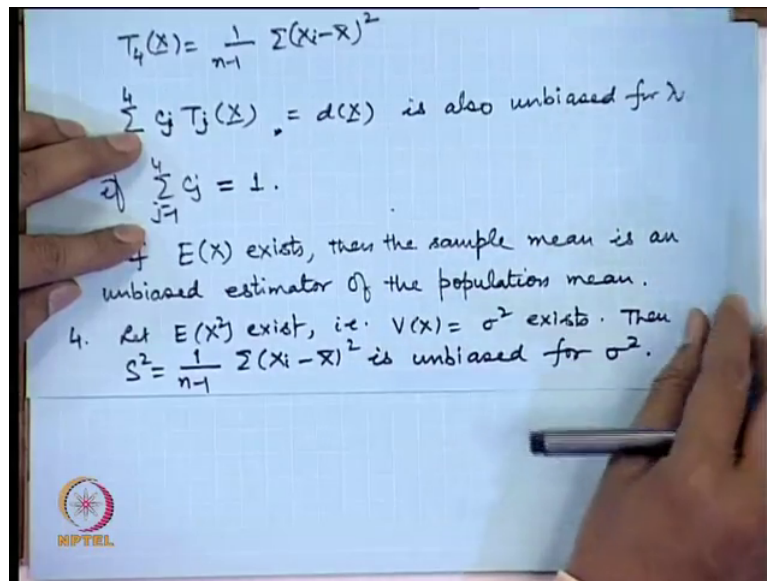 T₄(X) = 1/(n-1) Σ(Xi - X̄)²
4 Σ cj Tj(X) = d(X) is also unbiased for λ
if 4 Σ j=1 cj = 1.
E(X) exists, then the sample mean is an
unbiased estimator of the population mean.
4. Let E(X²) exist, i.e. V(X) = σ² exists. Then
S² = 1/(n-1) Σ(Xi - X̄)² is unbiased for σ².
NPTEL